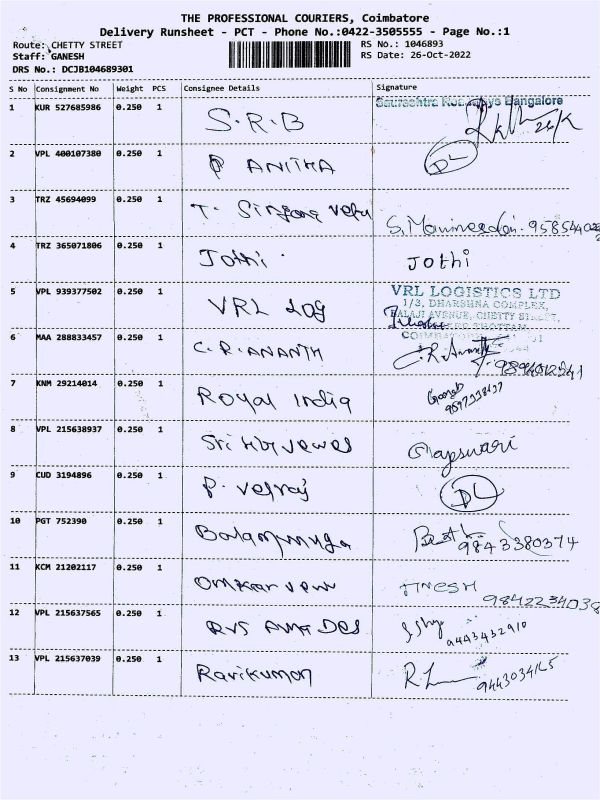 THE PROFESSIONAL COURIERS, Coimbatore
Delivery Runsheet - PCT - Phone No.:0422-3505555 - Page No.:1
Route: CHETTY STREET RS No.: 1046893
Staff: GANESH RS Date: 26-Oct-2022
DRS No.: DCJB104689301
S No Consignment No Weight PCS Consignee Details Signature
1 KUR 527685986 0.250 1 S.R.B Bangalore
2 VPL 400107380 0.250 1 P ANITHA DL
3 TRZ 45694099 0.250 1 T.
4 TRZ 365071806 0.250 1 Jothi. Jothi
5 VPL 939377502 0.250 1 VRL Log VRL LOGISTICS LTD
1/3, DHARSHNA COMPLEX,
BALAJI AVENUE, CHETTY STREET,
6 MAA 288833457 0.250 1 C.R.ANANTH C.R.Ananth
7 KNM 29214014 0.250 1 Royal India
8 VPL 215638937 0.250 1 Sri
9 CUD 3194896 0.250 1 P. velraj DL
10 PGT 752390 0.250 1 9843380374
11 KCM 21202117 0.250 1 Omkar 9842234038
12 VPL 215637565 0.250 1 RVS Des 9443432910
13 VPL 215637039 0.250 1 Ravikumar 9443034165